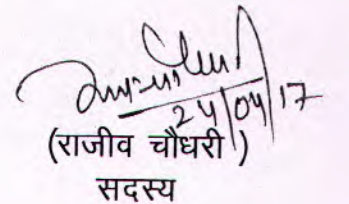 24/04/17
(राजीव चौधरी )
सदस्य